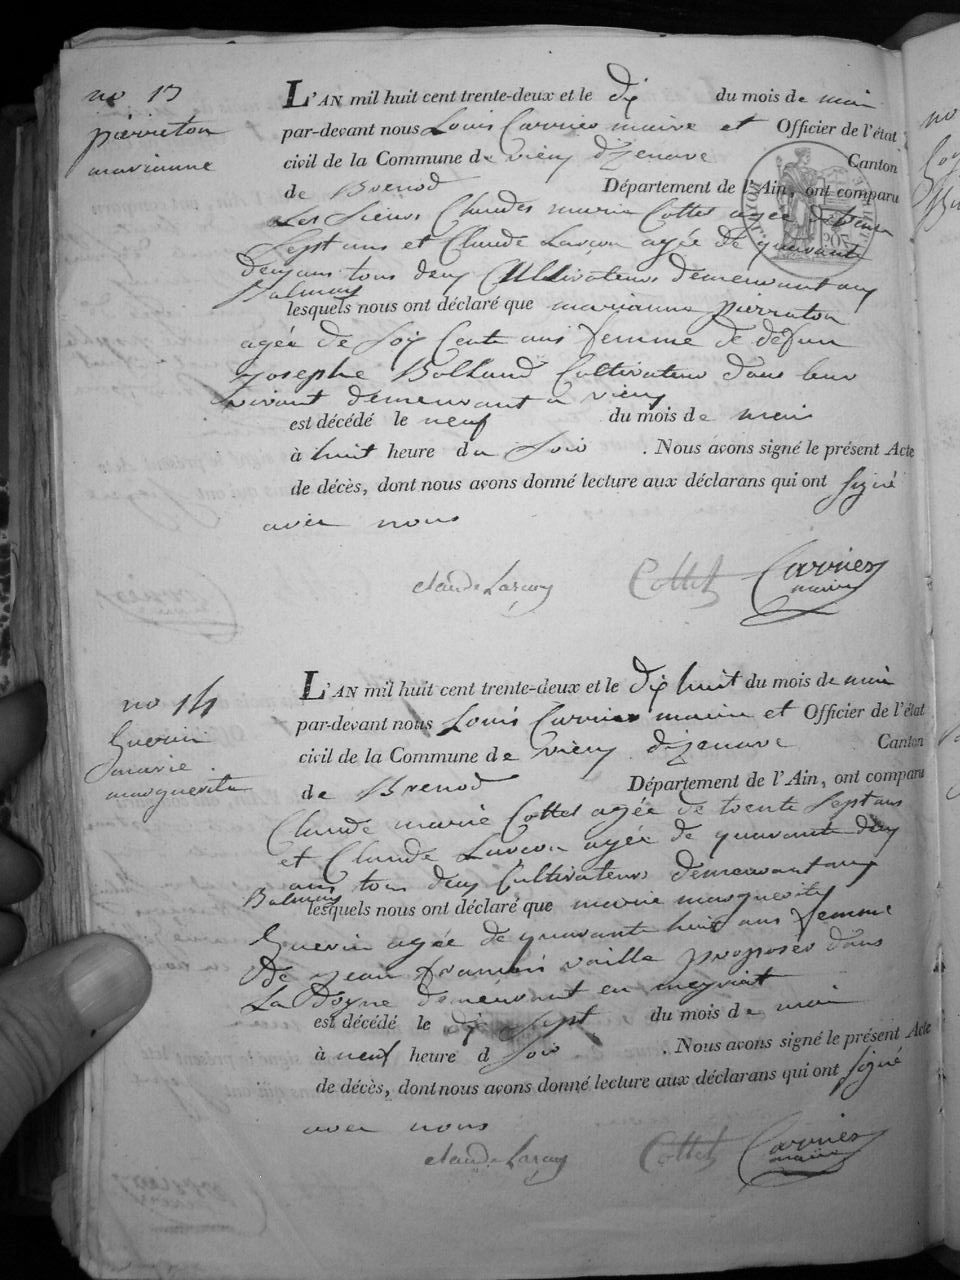 no 13
pierreton
marianne
L'AN mil huit cent trente-deux et le dix du mois de mai
par-devant nous Louis Carrier maire et Officier de l'état
civil de la Commune de vieu d'izenave Canton
de Brenod Département de l'Ain, ont comparu
Les sieurs Claudes marie Cottet agée de trente
Sept ans et Claude Lavaon agée de quarante
deux ans tous deux Cultivateurs demeurant aux
Balmay
lesquels nous ont déclaré que marianne pierreton
agée de soix cente ans femme de defun
Josephe Balland Cultivateur dans leur
vivant demeurant a vieu
est décédé le neuf du mois de mai
à huit heure du soir . Nous avons signé le présent Acte
de décès, dont nous avons donné lecture aux déclarans qui ont signé
avec nous
Cottet Carrier
maire
no 14
Guerin
marie
marguerite
L'AN mil huit cent trente-deux et le dix huit du mois de mai
par-devant nous Louis Carrier maire et Officier de l'état
civil de la Commune de vieu d'izenave Canton
de Brenod Département de l'Ain, ont comparu
Claude marie Cottet agée de trente Sept ans
et Claude Lavaon agée de quarante deux
ans tous deux Cultivateurs demeurant aux
Balmay
lesquels nous ont déclaré que marie marguerite
Guerin agée de quarante huit ans femme
de jean francois vaille proposer dans
La Doyne demeurant en meyriat
est décédé le dix Sept du mois de mai
à neuf heure d soir . Nous avons signé le présent Acte
de décès, dont nous avons donné lecture aux déclarans qui ont signé
avec nous
Cottet Carrier
maire